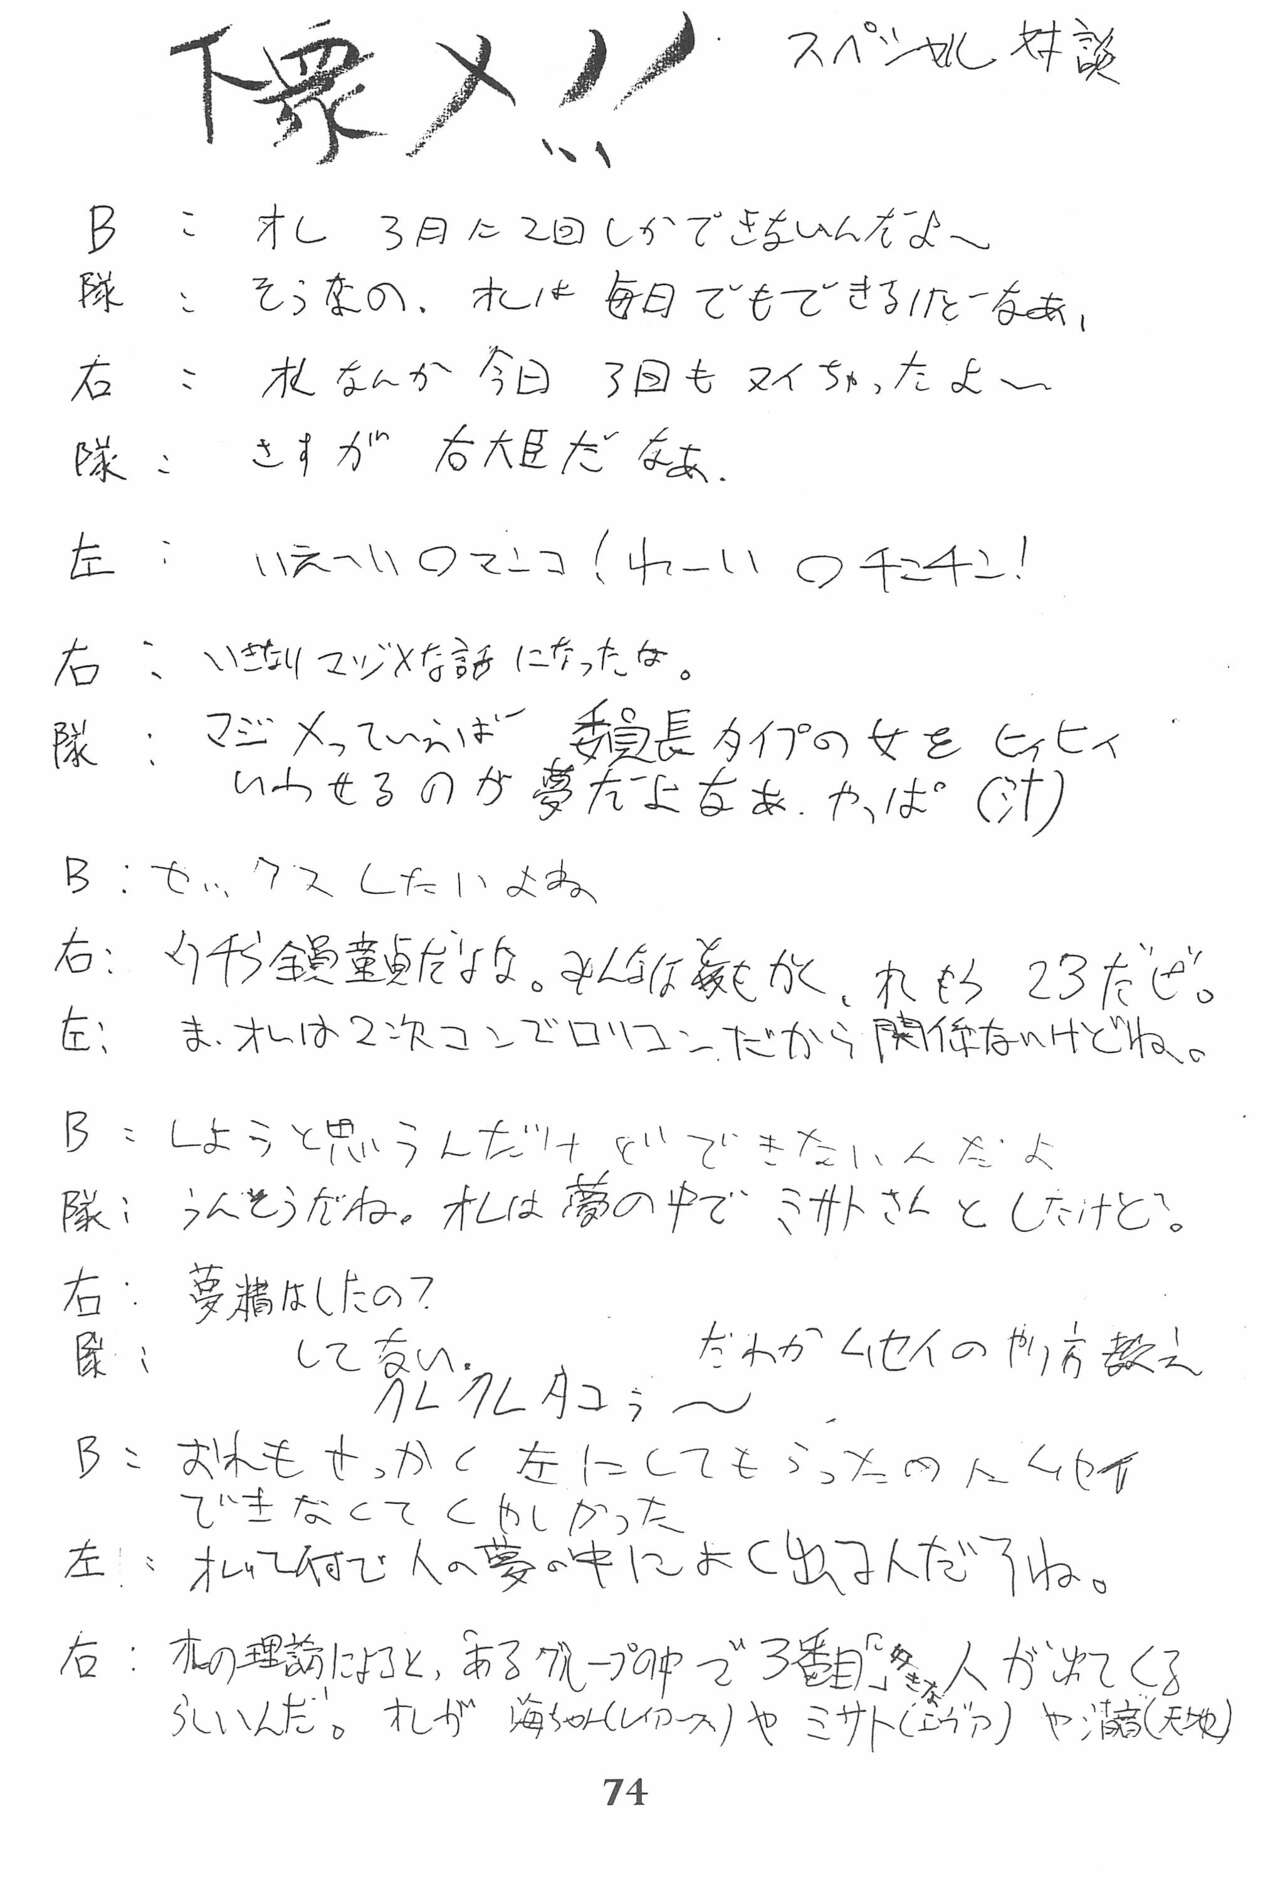 下衆メ!! スペシャル対談
B: オレ 3月に2回しかできないんだよ〜
隊: そうなの. オレは毎日でもできるけどーなぁ,
右: オレなんか今日 3回もヌイちゃったよ〜
隊: さすが 右大臣だなぁ.
左: いえーい○マンコ! れーい○チンチン!
右: いきなりマジメな話になったな。
隊: マジメっていえば 委員長タイプの女をヒィヒィ
いわせるのが夢だよなぁ. やっぱ(汁)
B: セックスしたいよね
右: ウチら全員童貞だよな。みんなは
もかく、オレもう23だぜ。
左: ま. オレは2次コンでロリコンだから関係ないけどね。
B: しようと思うんだけどできないんだよ
隊: うんそうだね。オレは夢の中でミサトさんとしたけど。
右: 夢精はしたの?
隊: してない. だれかムセイのやり方教え
クレクレタコラ〜
B: おれもせっかく左にしてもらったのにムセイ
できなくてくやしかった
左: オレって何で人の夢の中によく出るんだろね。
右: オレの理論によると,「あるグループの中で3番目」に好きな人が出てくる
らしいんだ。オレが海ちゃん(レイアース)やミサト(エヴァ)や清音(天地)
74